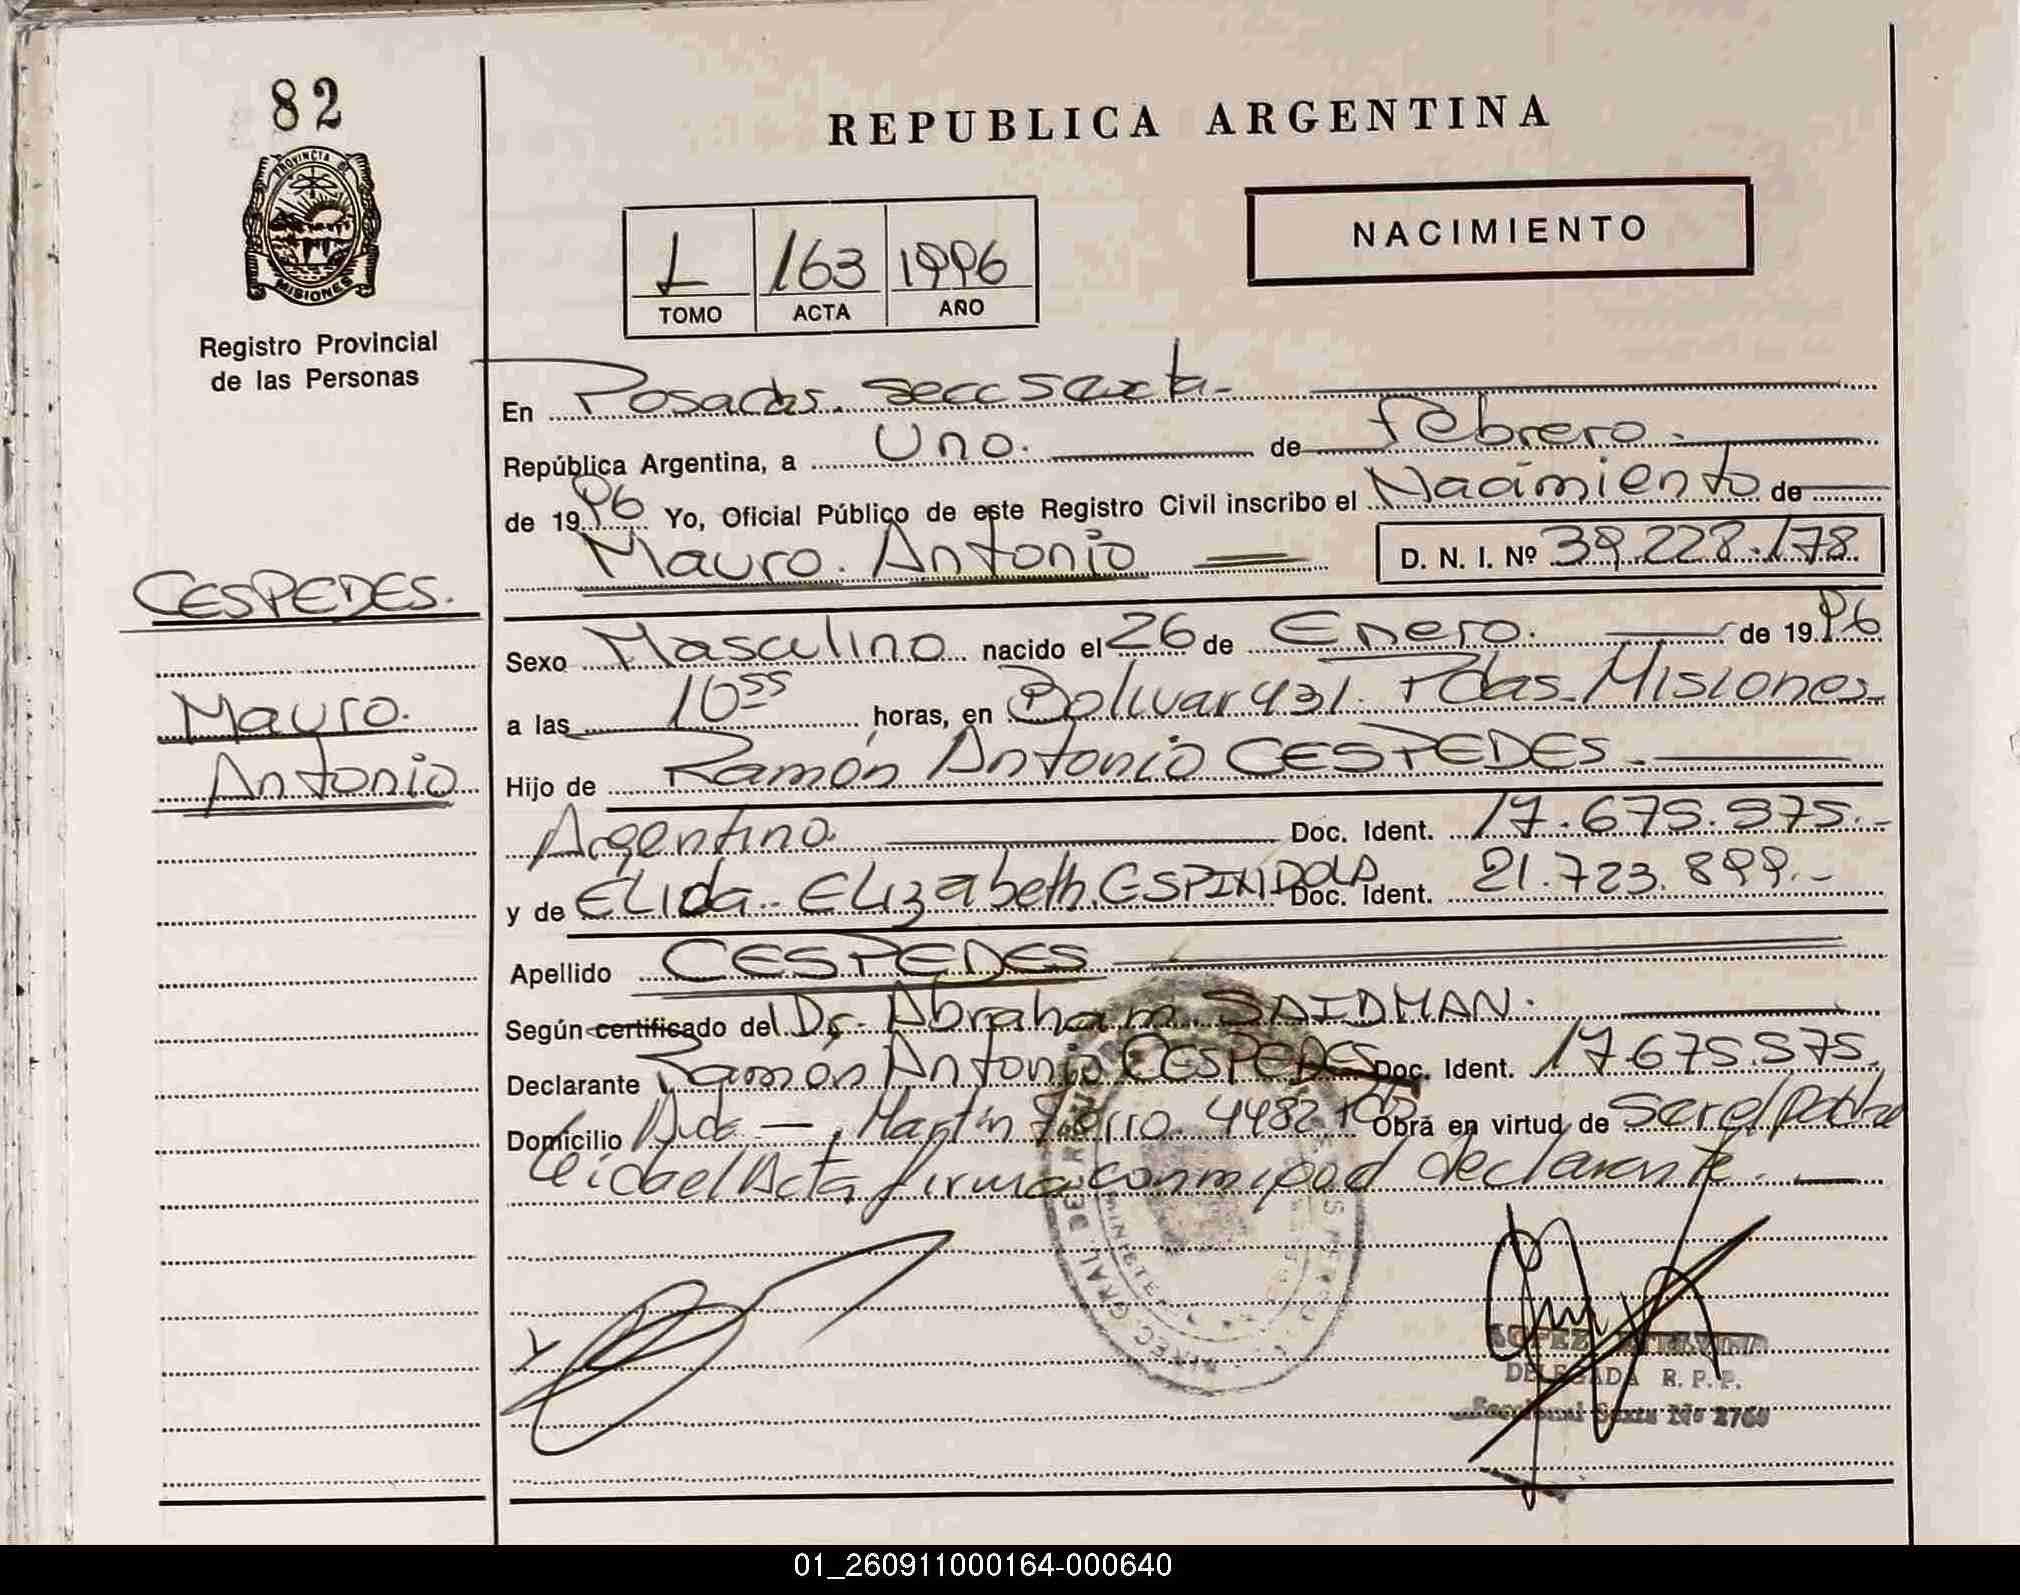 82
PROVINCIA DE
MISIONES
Registro Provincial
de las Personas
REPUBLICA ARGENTINA
NACIMIENTO
1 163 1996
TOMO ACTA AÑO
En Posadas. secc sexta-
República Argentina, a Uno. de febrero.-
de 1996 Yo, Oficial Público de este Registro Civil inscribo el Nacimiento de
Mauro. Antonio D. N. I. Nº 39.228.178
CESPEDES.
Mauro.
Antonio
Sexo Masculino nacido el 26 de Enero. de 1996
a las 10 55 horas, en Bolivar 431. Pdas. Misiones
Hijo de Ramón Antonio CESPEDES.
Argentino Doc. Ident. 17.675.575.-
y de ELida. ELizabeth. ESPINDOLA Doc. Ident. 21.723.899.-
Apellido CESPEDES
Según certificado del Dr. Abraham SAIDMAN.
Declarante Ramón Antonio CESPEDES Doc. Ident. 17.675.575.
Domicilio Avda - Martín Fierro 4482 Obra en virtud de Ser el padre
leida el Acta firma conmigo el declarante.
DELEGADA R. P. P.
Seccional Sexta
01_260911000164-000640